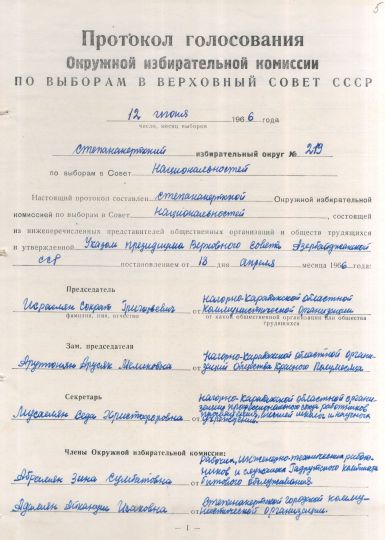 5
Протокол голосования
Окружной избирательной комиссии
ПО ВЫБОРАМ В ВЕРХОВНЫЙ СОВЕТ СССР
12 июня 1966 года
число, месяц выборов
Степанакертский избирательный округ № 219
по выборам в Совет Национальностей
Настоящий протокол составлен Степанакертской Окружной избирательной
комиссией по выборам в Совет Национальностей, состоящей
из нижеперечисленных представителей общественных организаций и обществ трудящихся
и утвержденной Указом президиума Верховного совета Азербайджанской
ССР постановлением от 13 дня апреля месяца 1966 года:
Председатель
Исраелян Сократ Григорьевич от Нагорно-Карабахской областной
коммунистической организации
фамилия, имя, отчество от какой общественной организации или общества
трудящихся
Зам. председателя
Арутюнян Аруся от Нагорно-Карабахской областной органи-
зации Общества Красного Полумесяца
Секретарь
Мусаелян Седа Христофоровна от Нагорно-Карабахской областной органи-
зации профессионального союза работников
высшей школы и научных
учреждений.
Члены Окружной избирательной комиссии:
Абрамян Зина Сумбатовна от рабочих, инженерно-технических работ-
ников и служащих Гадрутского комбината
бытового обслуживания
Адамян Исааковна от Степанакертской городской комму-
нистической организации.
— 1 —